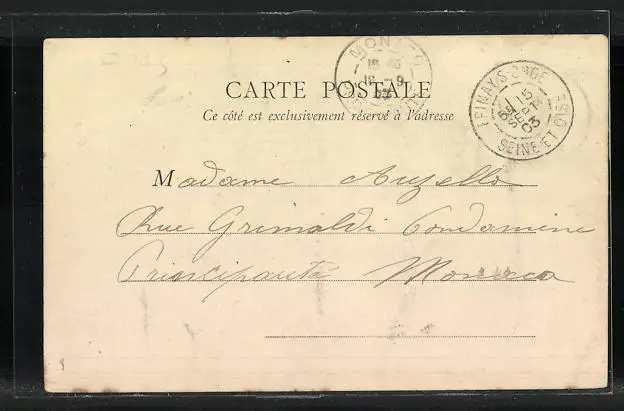 MONACO
CARTE POSTALE
Ce côté est exclusivement réservé à l'adresse
EPINAY-S-ORGE
15
SEPT
03
SEINE ET OISE
Madame Auzello
Rue Grimaldi Condamine
Principauté Monaco